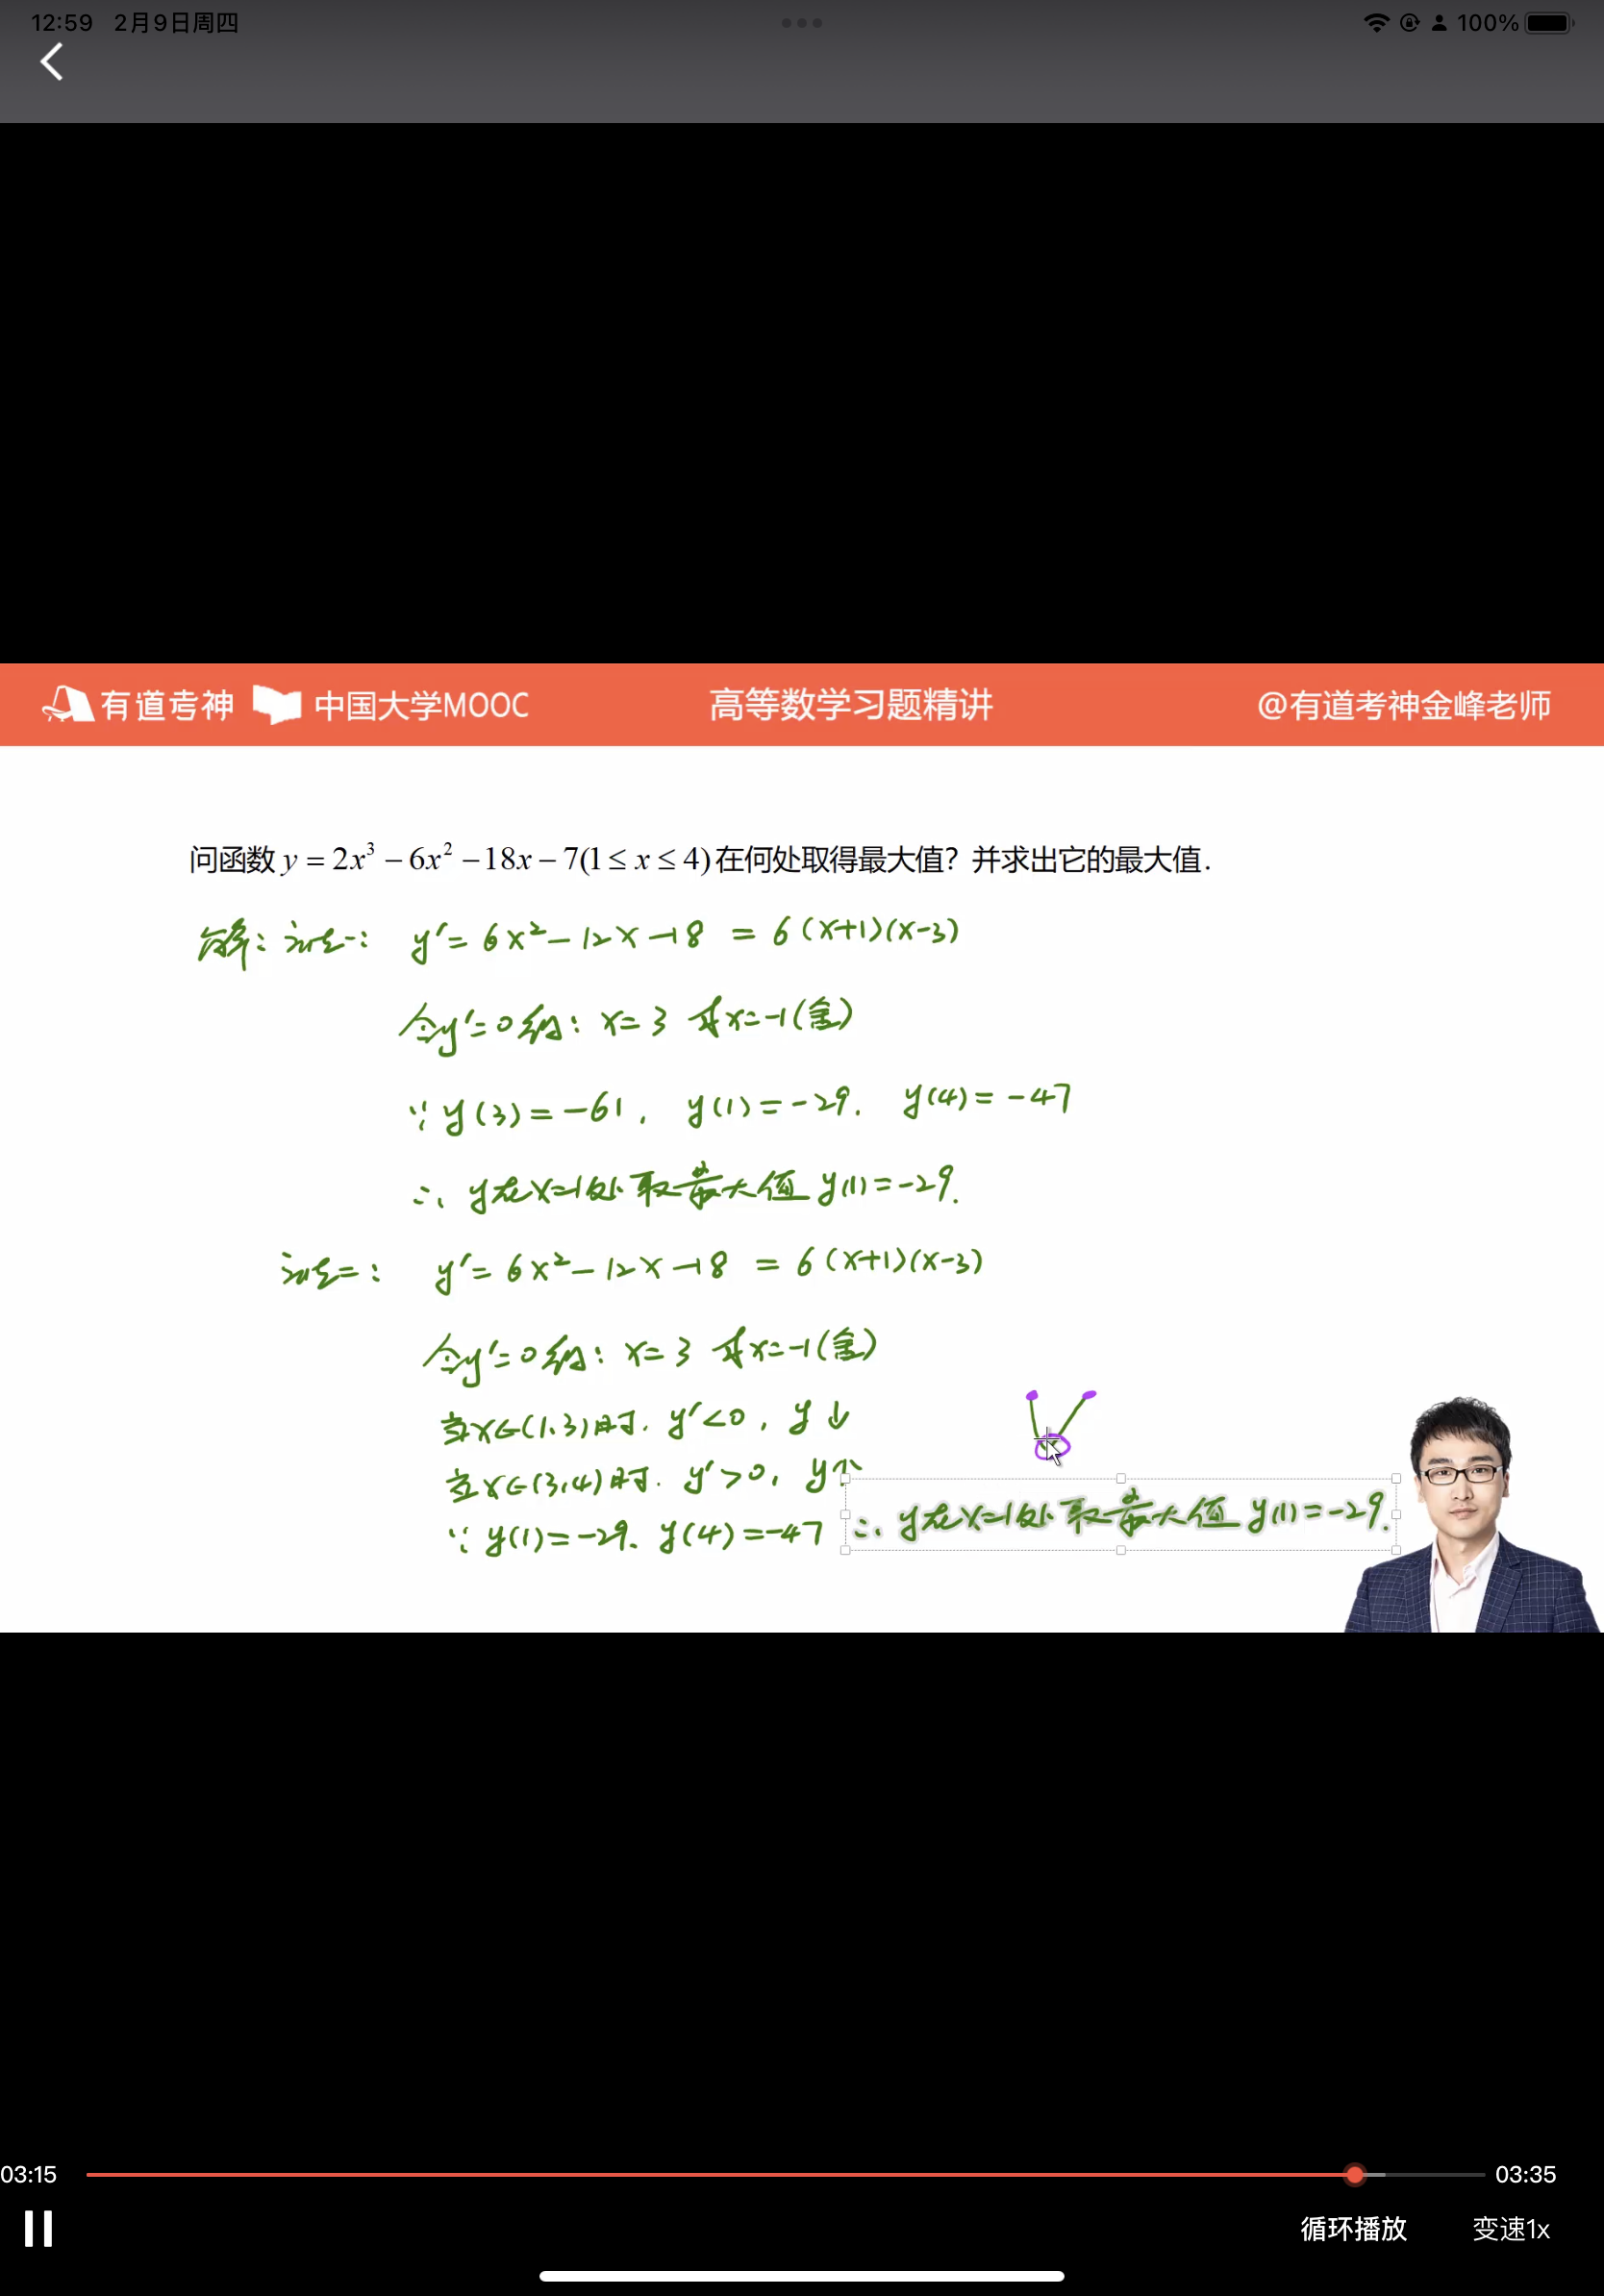 12:59 2月9日周四 100%
有道考神 中国大学MOOC 高等数学习题精讲 @有道考神金峰老师
问函数 y = 2x³ − 6x² − 18x − 7(1 ≤ x ≤ 4) 在何处取得最大值？并求出它的最大值.
解：法一： y′= 6x²−12x−18 = 6(x+1)(x−3)
令y′=0 得： x=3 或x=−1(舍)
∵ y(3)=−61, y(1)=−29. y(4)=−47
∴ y在x=1处取最大值 y(1)=−29.
法二： y′= 6x²−12x−18 = 6(x+1)(x−3)
令y′=0 得： x=3 或x=−1(舍)
当x∈(1,3)时. y′<0, y↓
当x∈(3,4)时. y′>0, y↑
∵ y(1)=−29. y(4)=−47 ∴ y在x=1处取最大值 y(1)=−29.
03:15 03:35
循环播放 变速1x